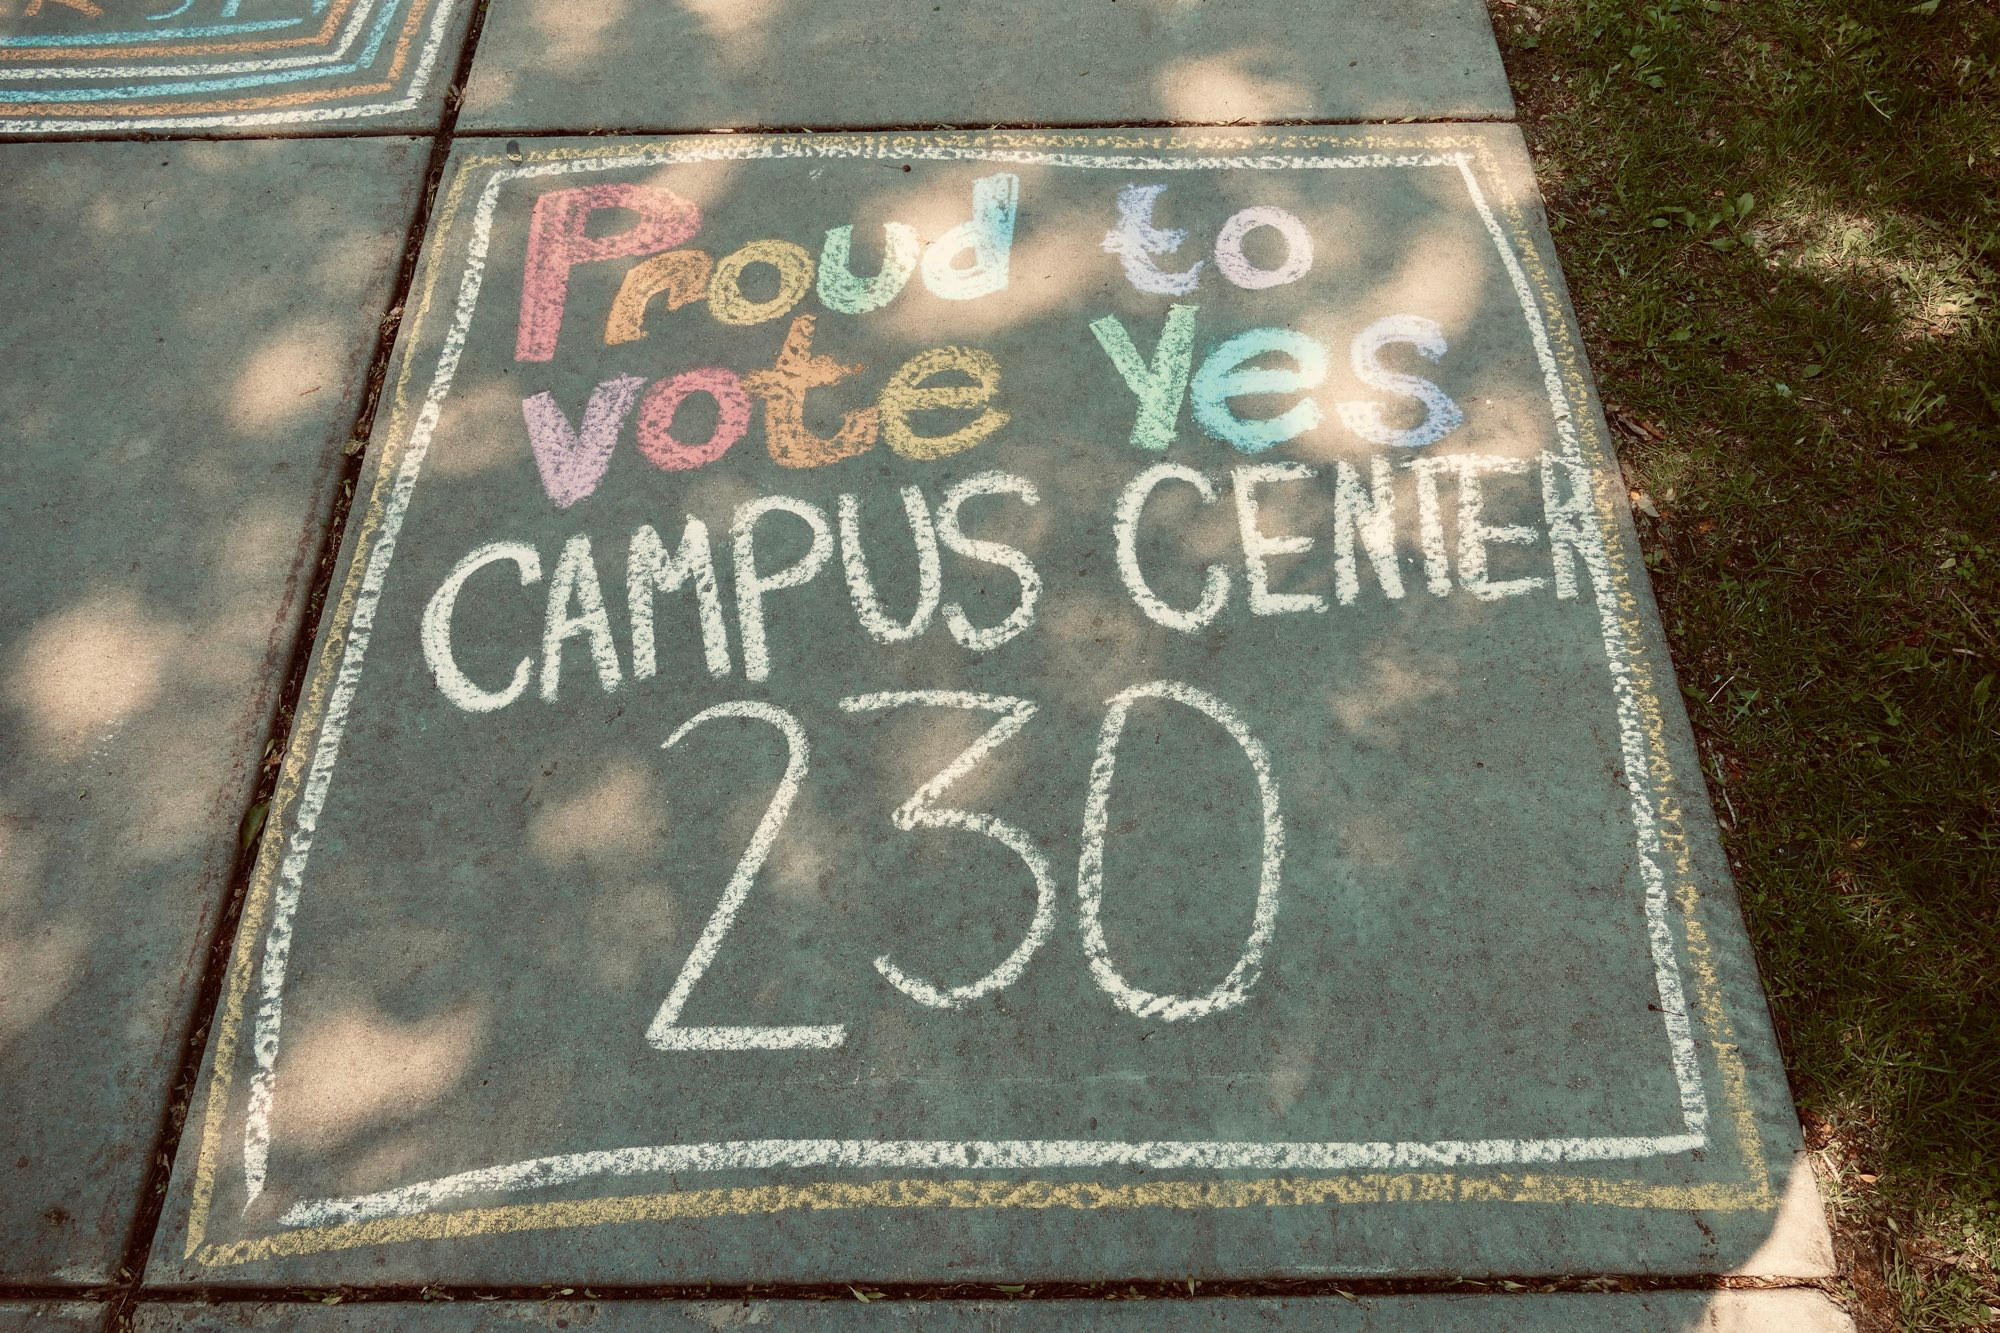 Proud to
vote Yes
CAMPUS CENTER
230